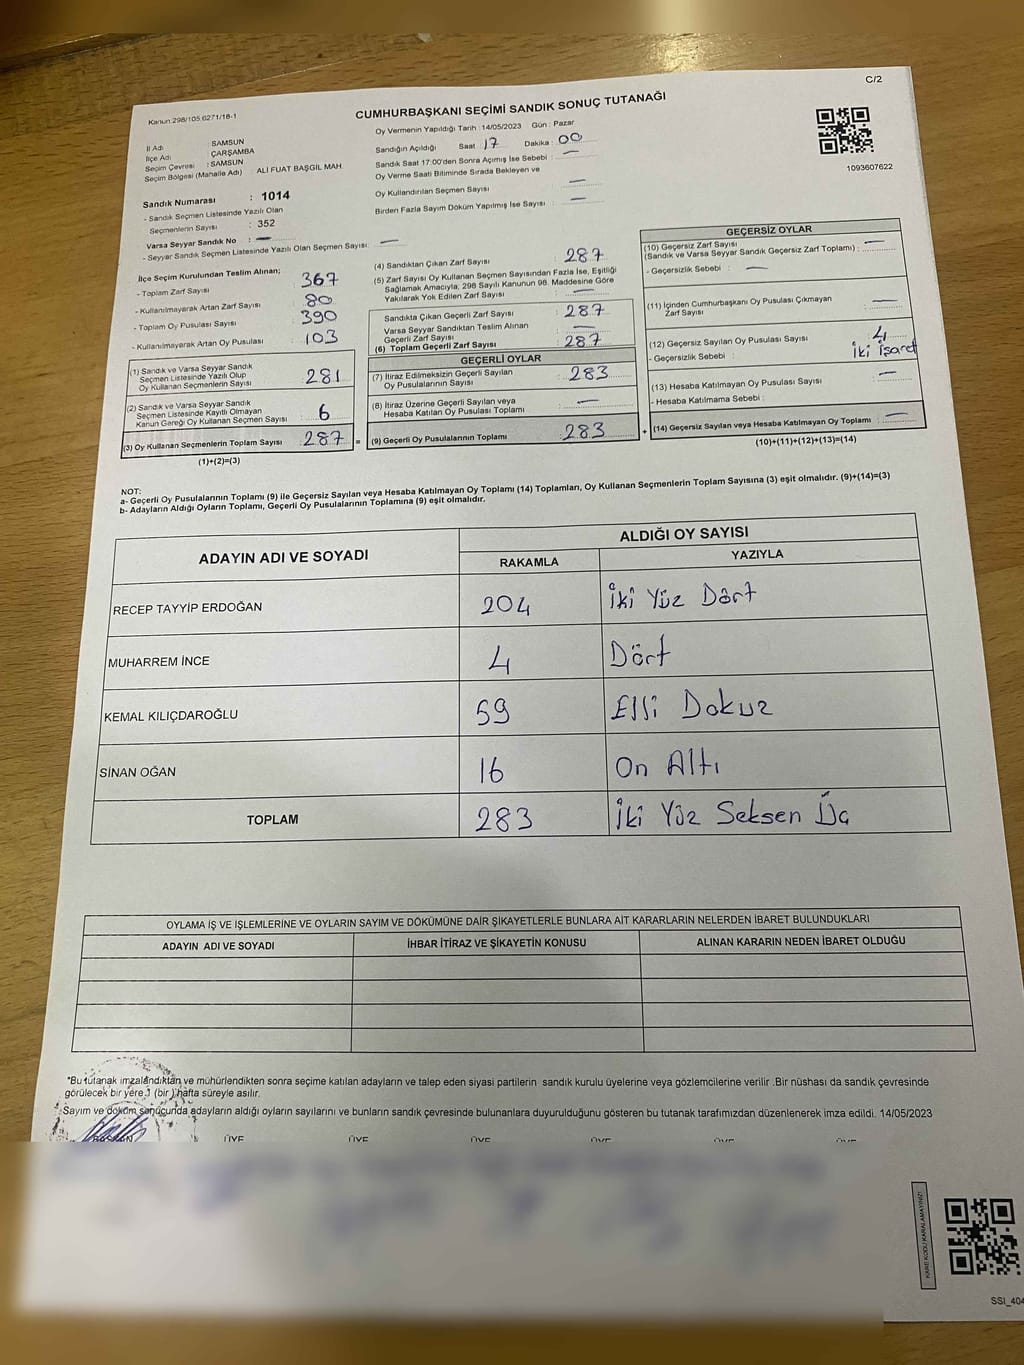 C/2
Kanun 298/105,6271/18-1
CUMHURBAŞKANI SEÇİMİ SANDIK SONUÇ TUTANAĞI
1093607622
İl Adı SAMSUN
İlçe Adı ÇARŞAMBA
Seçim Çevresi : SAMSUN
Seçim Bölgesi (Mahalle Adı) ALİ FUAT BAŞGİL MAH.
Sandık Numarası : 1014
- Sandık Seçmen Listesinde Yazılı Olan
Seçmenlerin Sayısı : 352
Varsa Seyyar Sandık No : —
- Seyyar Sandık Seçmen Listesinde Yazılı Olan Seçmen Sayısı: —
Oy Vermenin Yapıldığı Tarih : 14/05/2023 Gün : Pazar
Sandığın Açıldığı Saat 17 Dakika : 00
Sandık Saat 17:00'den Sonra Açılmış İse Sebebi : —
Oy Verme Saati Bitiminde Sırada Bekleyen ve
Oy Kullandırılan Seçmen Sayısı —
Birden Fazla Sayım Döküm Yapılmış İse Sayısı : —
İlçe Seçim Kurulundan Teslim Alınan;
- Toplam Zarf Sayısı 367
- Kullanılmayarak Artan Zarf Sayısı 80
- Toplam Oy Pusulası Sayısı 390
- Kullanılmayarak Artan Oy Pusulası : 103
(1) Sandık ve Varsa Seyyar Sandık
Seçmen Listesinde Yazılı Olup
Oy Kullanan Seçmenlerin Sayısı : 281
(2) Sandık ve Varsa Seyyar Sandık
Seçmen Listesinde Kayıtlı Olmayan
Kanun Gereği Oy Kullanan Seçmen Sayısı : 6
(3) Oy Kullanan Seçmenlerin Toplam Sayısı : 287 =
(1)+(2)=(3)
(4) Sandıktan Çıkan Zarf Sayısı : 287
(5) Zarf Sayısı Oy Kullanan Seçmen Sayısından Fazla İse, Eşitliği
Sağlamak Amacıyla, 298 Sayılı Kanunun 98. Maddesine Göre
Yakılarak Yok Edilen Zarf Sayısı : —
Sandıkta Çıkan Geçerli Zarf Sayısı : 287
Varsa Seyyar Sandıktan Teslim Alınan
Geçerli Zarf Sayısı : —
(6) Toplam Geçerli Zarf Sayısı : 287
GEÇERLİ OYLAR
(7) İtiraz Edilmeksizin Geçerli Sayılan
Oy Pusulalarının Sayısı : 283
(8) İtiraz Üzerine Geçerli Sayılan veya
Hesaba Katılan Oy Pusulası Toplamı : —
(9) Geçerli Oy Pusulalarının Toplamı : 283 +
GEÇERSİZ OYLAR
(10) Geçersiz Zarf Sayısı
(Sandık ve Varsa Seyyar Sandık Geçersiz Zarf Toplamı) : —
- Geçersizlik Sebebi : —
(11) İçinden Cumhurbaşkanı Oy Pusulası Çıkmayan
Zarf Sayısı : —
(12) Geçersiz Sayılan Oy Pusulası Sayısı : 4
- Geçersizlik Sebebi : İki İşaret
(13) Hesaba Katılmayan Oy Pusulası Sayısı : —
- Hesaba Katılmama Sebebi :
(14) Geçersiz Sayılan veya Hesaba Katılmayan Oy Toplamı : —
(10)+(11)+(12)+(13)=(14)
NOT:
a- Geçerli Oy Pusulalarının Toplamı (9) ile Geçersiz Sayılan veya Hesaba Katılmayan Oy Toplamı (14) Toplamları, Oy Kullanan Seçmenlerin Toplam Sayısına (3) eşit olmalıdır. (9)+(14)=(3)
b- Adayların Aldığı Oyların Toplamı, Geçerli Oy Pusulalarının Toplamına (9) eşit olmalıdır.
ADAYIN ADI VE SOYADI ALDIĞI OY SAYISI
RAKAMLA YAZIYLA
RECEP TAYYİP ERDOĞAN 204 İki Yüz Dört
MUHARREM İNCE 4 Dört
KEMAL KILIÇDAROĞLU 59 Elli Dokuz
SİNAN OĞAN 16 On Altı
TOPLAM 283 İki Yüz Seksen Üç
OYLAMA İŞ VE İŞLEMLERİNE VE OYLARIN SAYIM VE DÖKÜMÜNE DAİR ŞİKAYETLERLE BUNLARA AİT KARARLARIN NELERDEN İBARET BULUNDUKLARI
ADAYIN ADI VE SOYADI İHBAR İTİRAZ VE ŞİKAYETİN KONUSU ALINAN KARARIN NEDEN İBARET OLDUĞU
*Bu tutanak imzalandıktan ve mühürlendikten sonra seçime katılan adayların ve talep eden siyasi partilerin sandık kurulu üyelerine veya gözlemcilerine verilir .Bir nüshası da sandık çevresinde
görülecek bir yere 1 (bir) hafta süreyle asılır.
Sayım ve döküm sonucunda adayların aldığı oyların sayılarını ve bunların sandık çevresinde bulunanlara duyurulduğunu gösteren bu tutanak tarafımızdan düzenlenerek imza edildi. 14/05/2023
BAŞKAN ÜYE ÜYE ÜYE ÜYE ÜYE ÜYE
KARE KODU KARALAMAYINIZ!